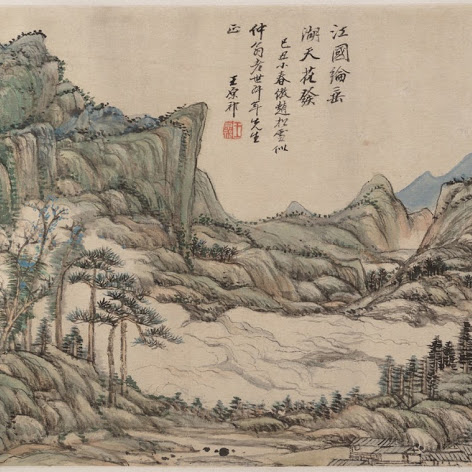 江國
湖天花發
己丑小春倣趙松雪似
仲翁老世年先生
正
王原祁